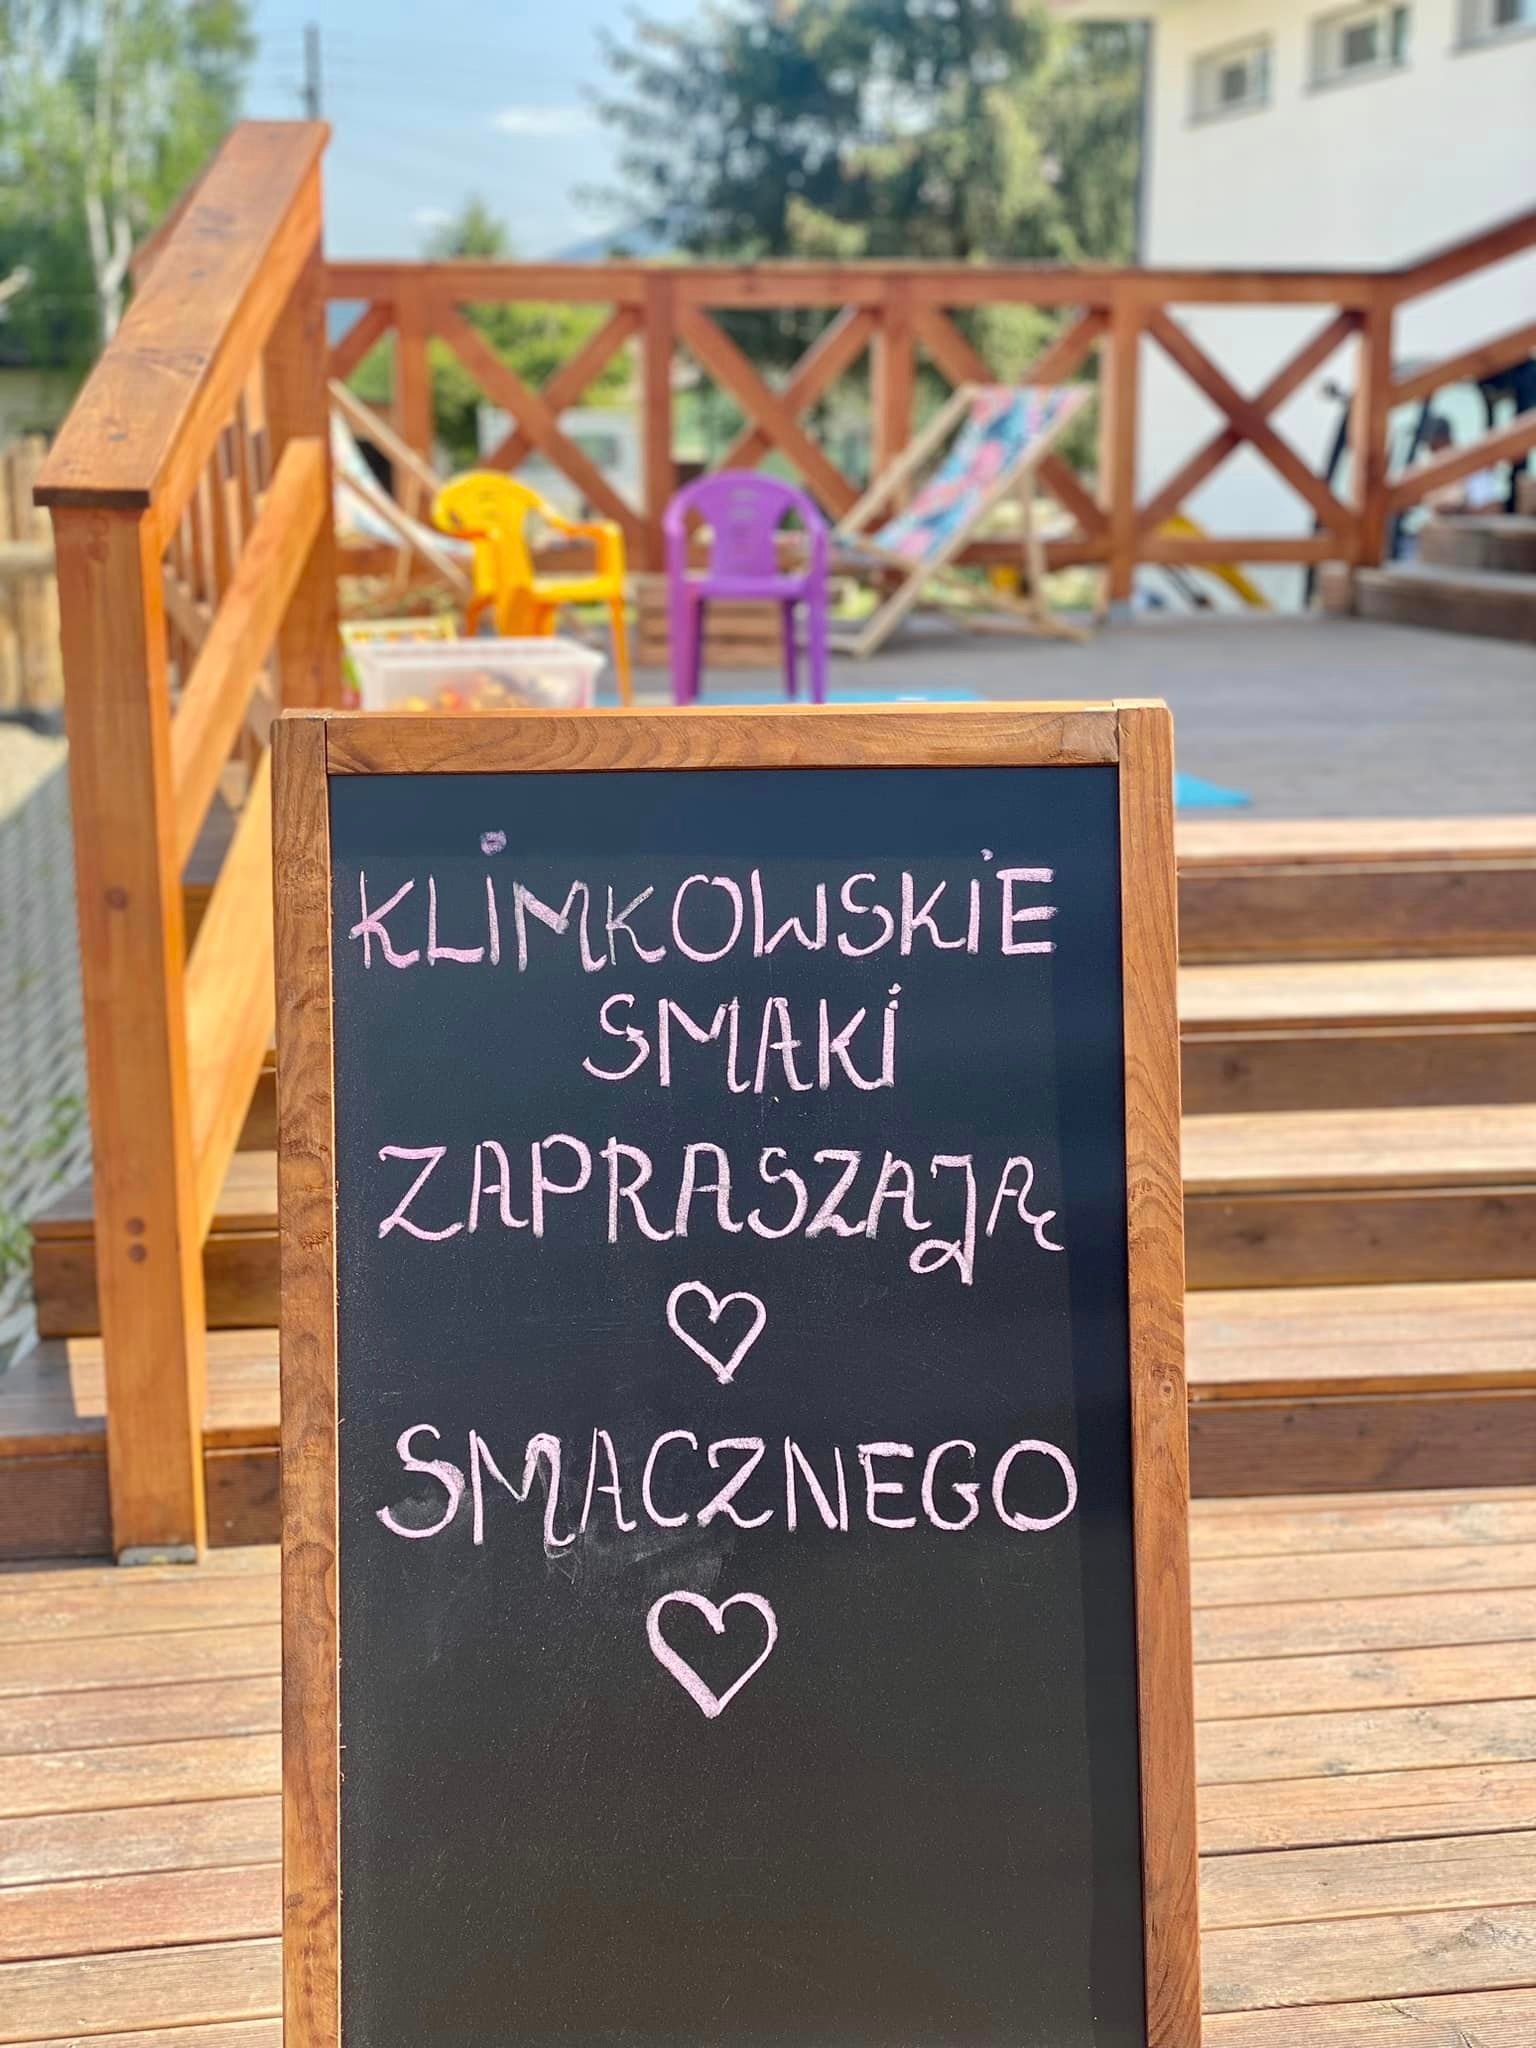 KLIMKOWSKIE
SMAKI
ZAPRASZAJĄ
SMACZNEGO